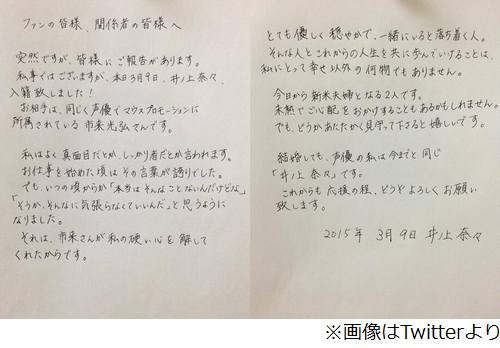 ファンの皆様、関係者の皆様へ
突然ですが、皆様にご報告があります。
私事ではございますが、本日3月9日、井ノ上奈々、
入籍致しました！
お相手は、同じく声優でマウスプロモーションに
所属されている市来光弘さんです。
私はよく真面目だとか、しっかり者だとか言われます。
お仕事を始めた頃はその言葉が誇りでした。
でも、いつの頃からか「本当はそんなことないんだけどな」
「そうか、そんなに気張らなくていいんだ」と思うように
なりました。
それは、市来さんが私の硬い心を解して
くれたからです。
とても優しく穏やかで、一緒にいると落ち着く人。
そんな人とこれからの人生を共に歩んでいけることは、
私にとって幸せ以外の何物でもありません。
今日から新米夫婦となる2人です。
未熟でご心配をおかけすることもあるかもしれません。
でも、どうかあたたかく見守って下さると嬉しいです。
結婚しても、声優の私は今までと同じ
「井ノ上奈々」です。
これからも応援の程、どうぞよろしくお願い
致します。
2015年 3月9日 井ノ上奈々
※画像はTwitterより